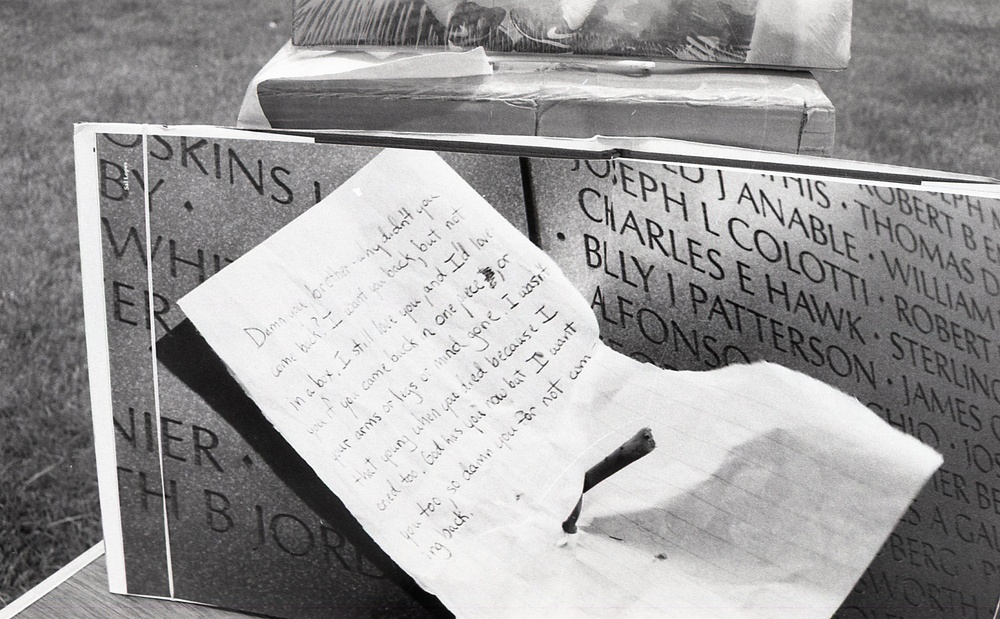 OSKINS
BY ·
WHI
ER
NIER ·
TH B JORD
Damn you brother - why didn't you
come back? I want you back, but not
in a box. I still love you and I'd love
you if you came back in one piece or
your arms or legs or mind gone. I wasn't
that young when you died because I
cried too. God has you now but I want
you too so damn you for not com
ing back.
THIS · ROBERT B E
ED J ANABLE · THOMAS D
JOSEPH L COLOTTI · WILLIAM
CHARLES E HAWK · ROBERT
· BLLY J PATTERSON · STERLING
ALFONSO · JAMES C
CHIO · JOS
ER BE
S A GAL
BERG ·
WORTH